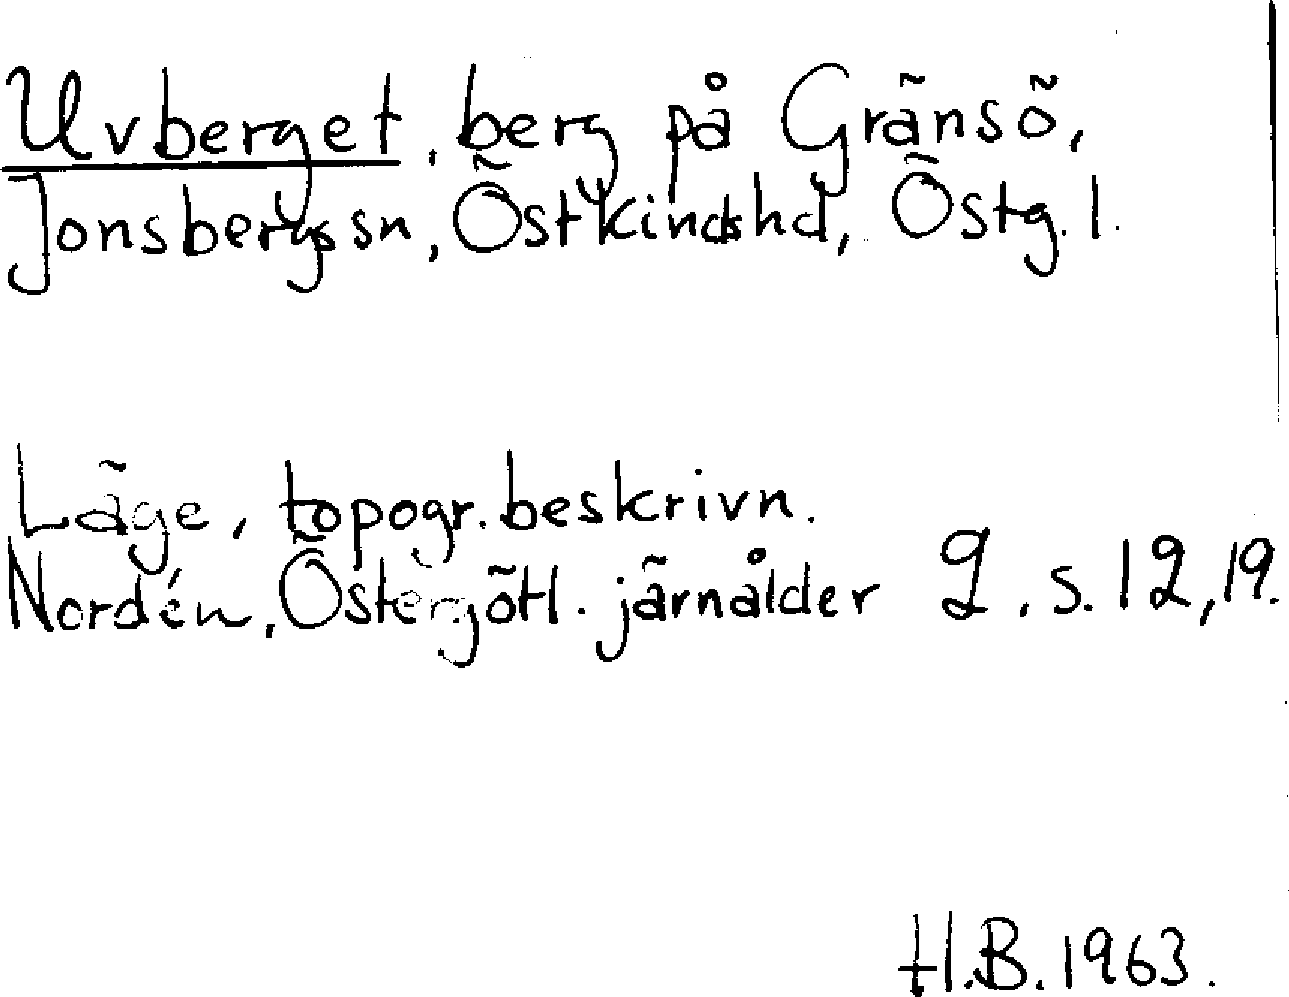 Uvberget, berg på Gränsö,
Jonsbergs sn, Östkinds hd, Östg. l.
Läge, topogr. beskrivn.
Nordén, Östergötl. järnålder 2, s. 12, 19.
H.B. 1963.